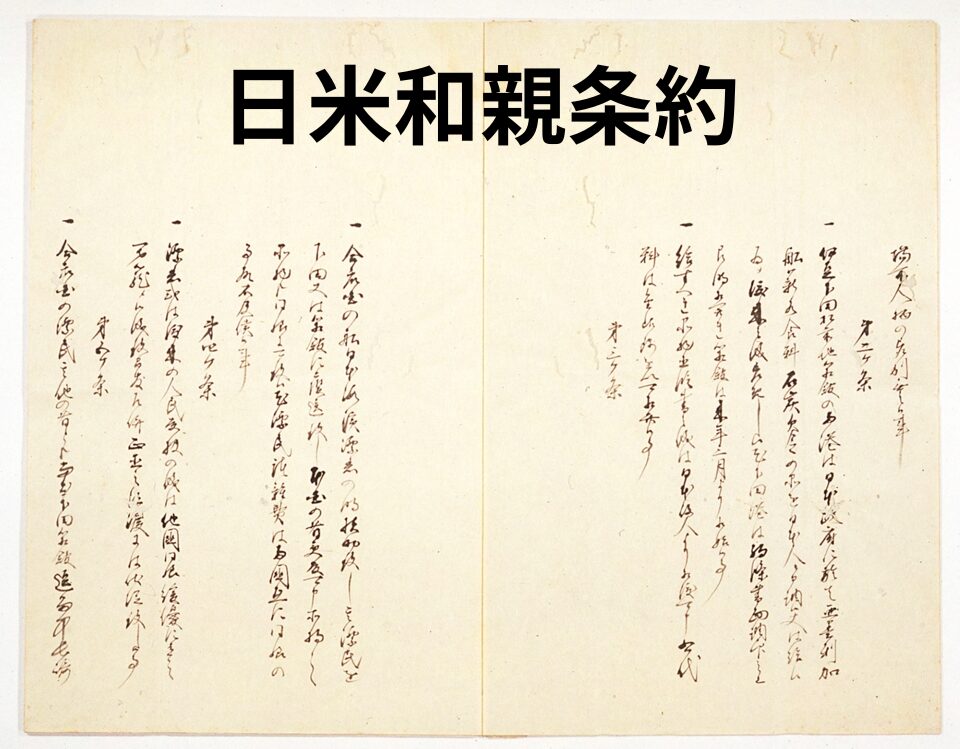 日米和親条約
場所人柄の差別無之事
第二ヶ条
一 伊豆下田松前地箱館の両港は日本政府ニ於て亜墨利加
船薪水食料石炭欠乏の品を日本人にて調候丈は給候
為メ渡来之儀差免し候尤下田港は約條書面調印之上
即時にも相開き箱館は来年三月より相始候事
一 給すへき品物直段書之儀は日本役人より相渡可申右代
料は金銀銭を以可相弁候事
第三ヶ条
一 合衆国の船日本海浜漂着の時扶助致し其漂民を
下田又は箱館に護送致し本国の者受取可申所持の
品物も同様に可致候尤漂民諸雑費は両國互に同様の
事故不及償候事
第四ヶ条
一 漂着或は渡来の人民取扱の儀は他國同様緩優に有之
閉籠メ候儀致間敷乍併正直の法度には伏従致し候事
第五ヶ条
一 合衆国の漂民其他の者とも当分下田箱館逗留中長崎